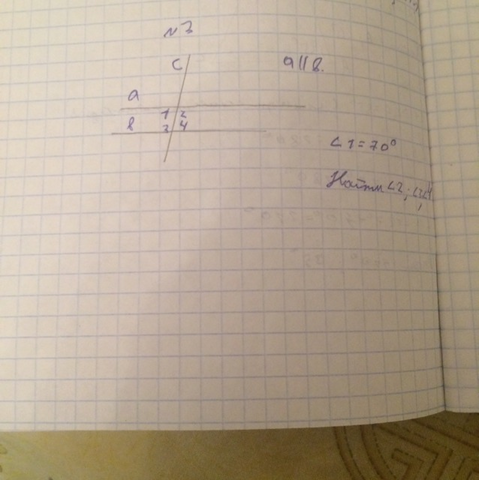 №3
c
a || b.
a
1 2
b 3 4
∠1 = 70°
Найти ∠2; ∠3, ∠4